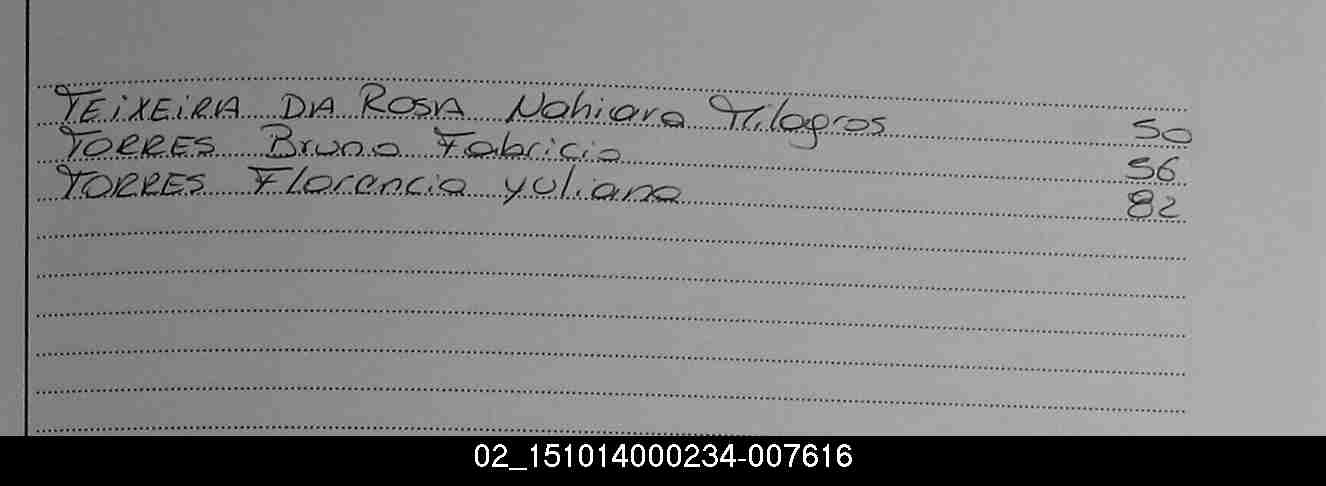 TEiXEiRA DA ROSA Nahiara Milagros 50
TORRES Bruno Fabricio 56
TORRES Florencia yuliana 82
02_151014000234-007616